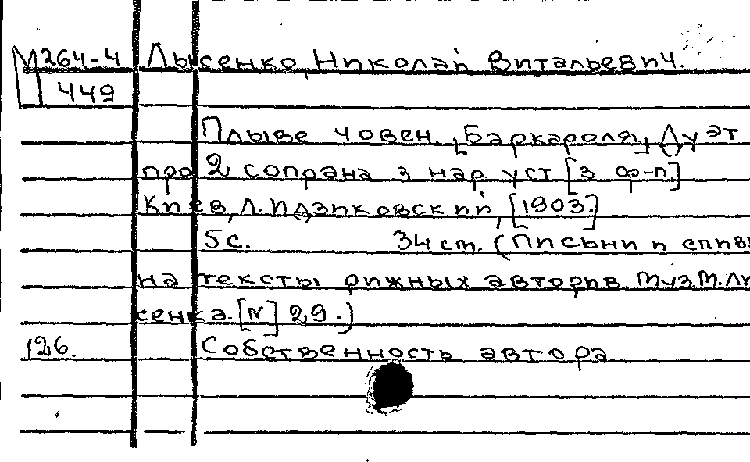 М264-4 Лысенко, Николай Витальевич.
449
Плыве човен. [Баркароля] Дуэт
про 2 сопрана з нар. уст [з ф-п.]
Киев, Л. Идзиковский, [1903.]
5 с. 34 cm. (Письни и спивы
на тексты рижных авторив. Муз. М. Лы
сенка. [N] 29.)
126. Собственность автора